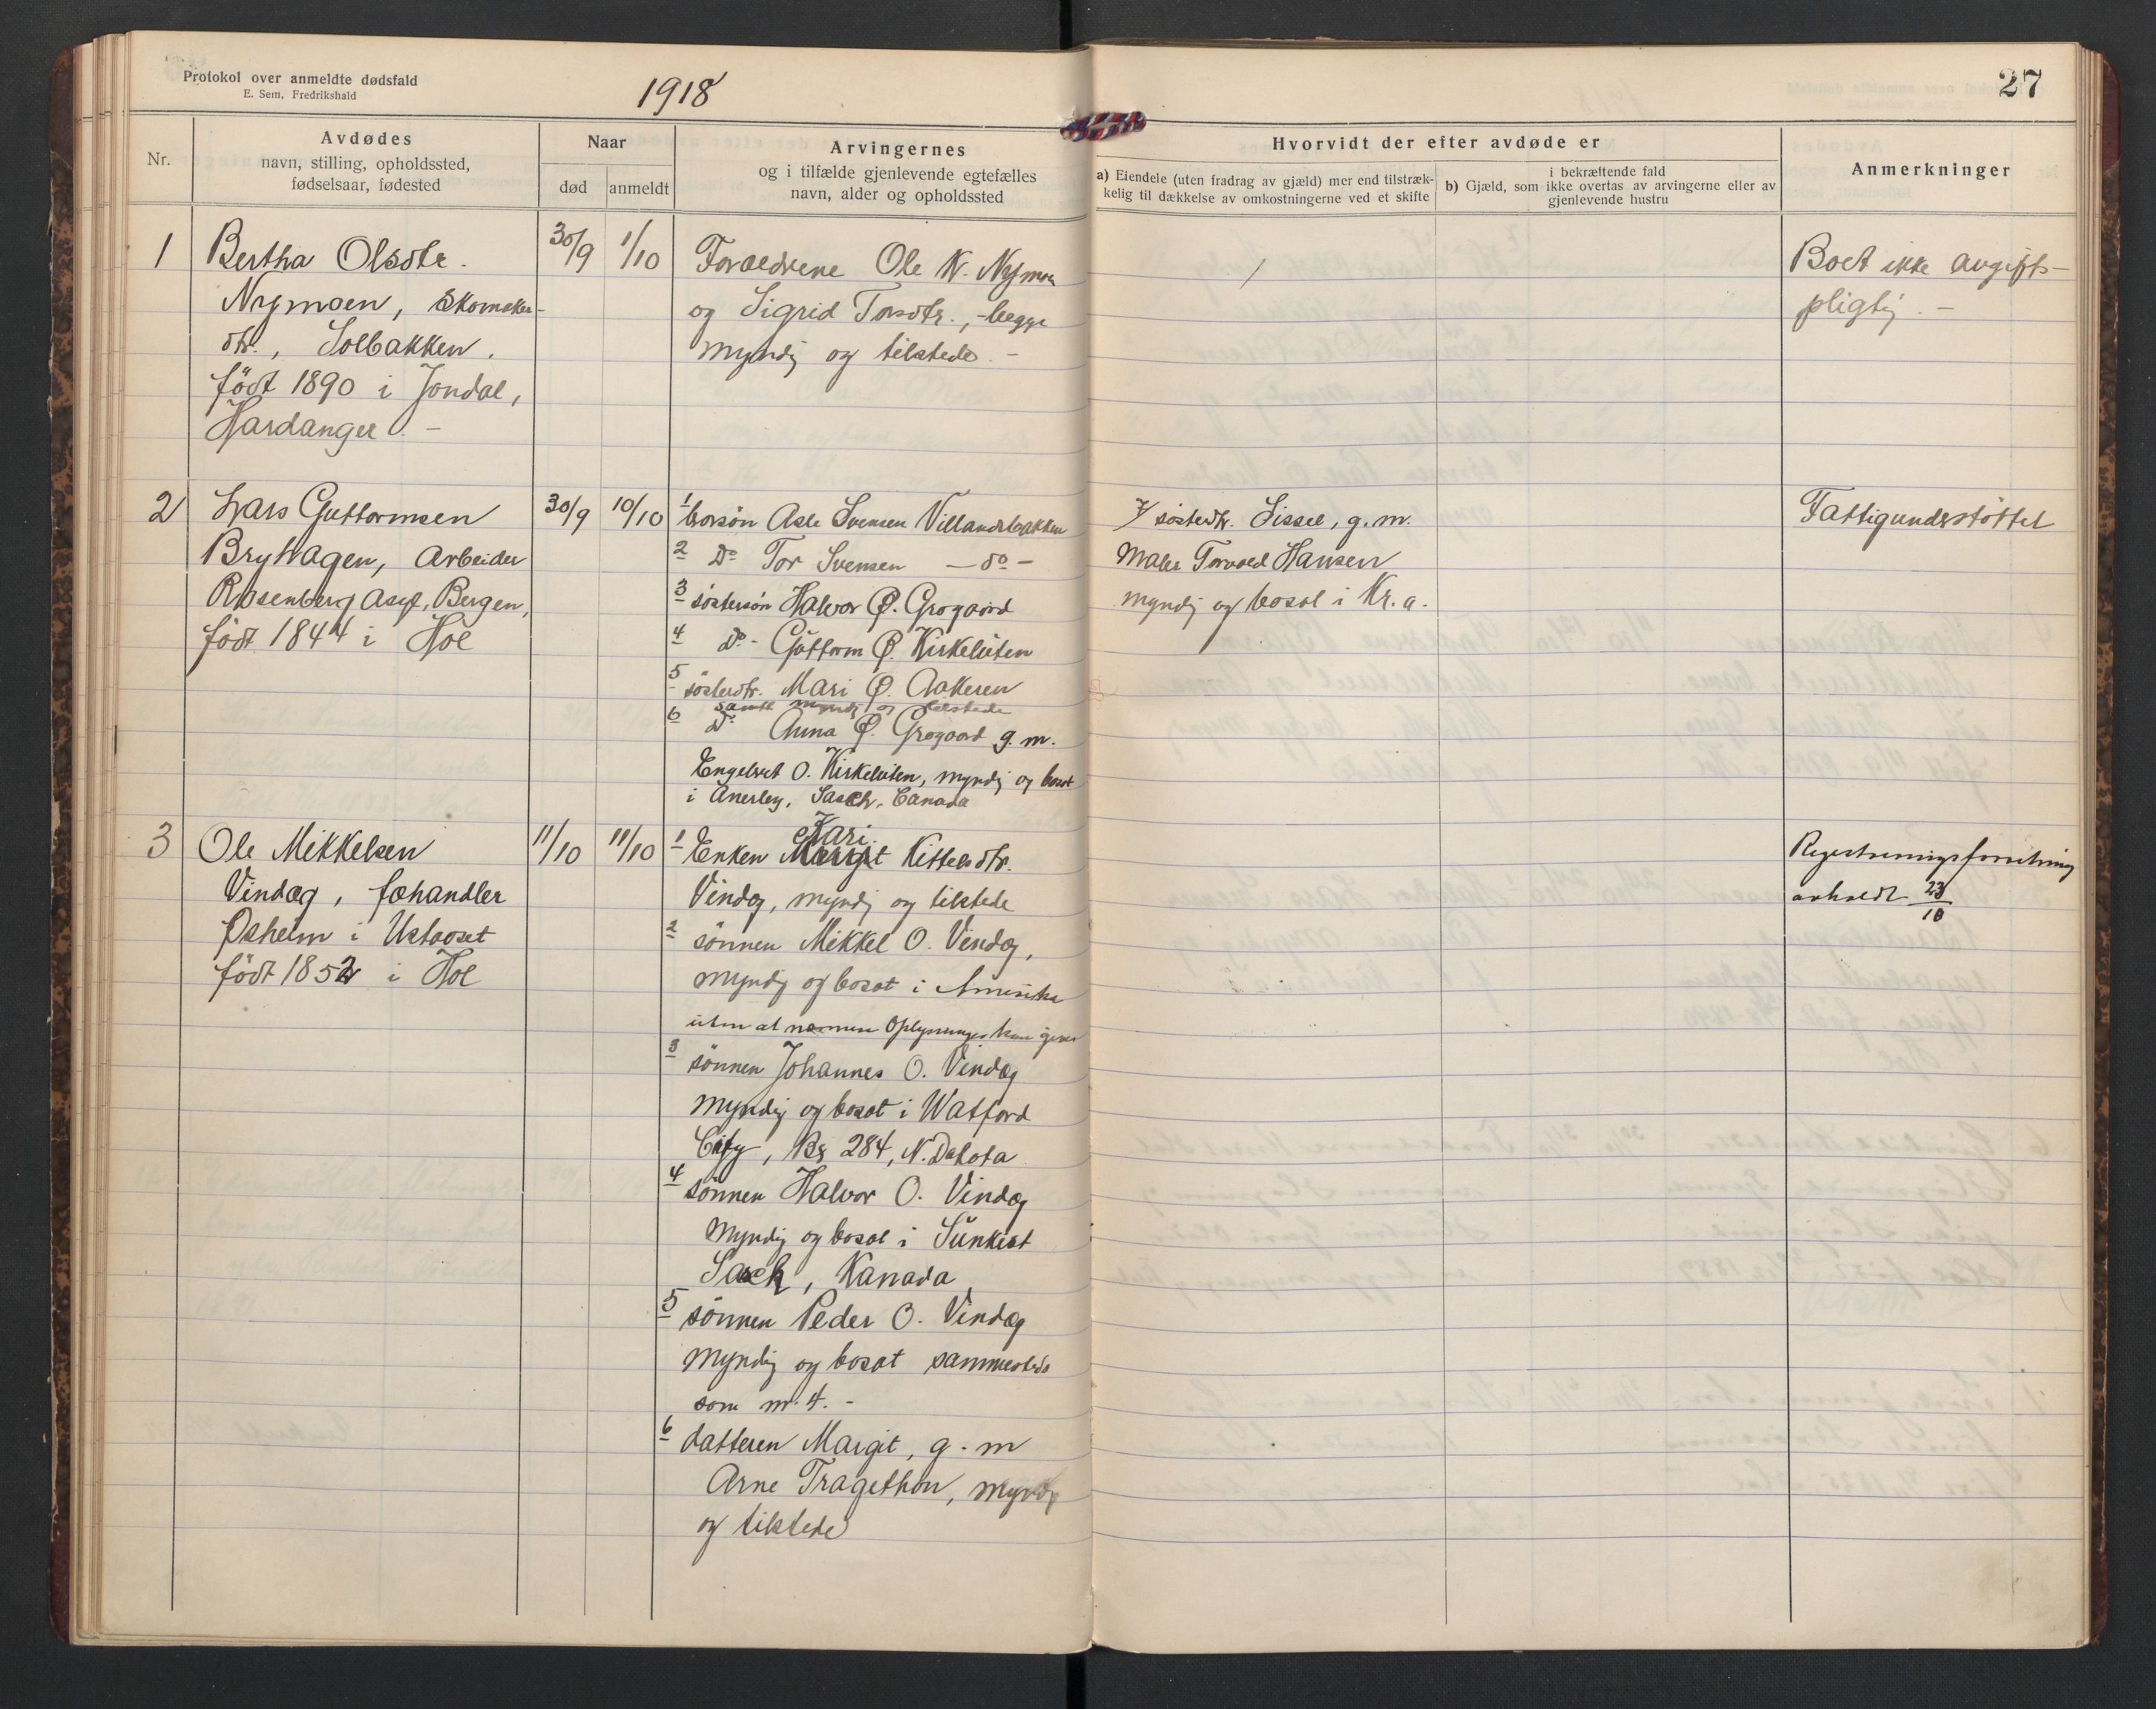 Protokol over anmeldte dødsfald
E. Sem, Fredrikshald
1918
27
Nr.
Avdødes
navn, stilling, opholdssted,
fødselsaar, fødested
Naar
død anmeldt
Arvingernes
og i tilfælde gjenlevende egtefælles
navn, alder og opholdssted
Hvorvidt der efter avdøde er
a) Eiendele (uten fradrag av gjæld) mer end tilstræk-
kelig til dækkelse av omkostningerne ved et skifte
i bekræftende fald
b) Gjæld, som ikke overtas av arvingerne eller av
gjenlevende hustru
Anmerkninger
1
Bertha Olsdtr.
Nymoen, Skomaker-
dtr., Solbakken.
født 1890 i Jondal,
Hardanger. -
30/9 1/10
Forældrene Ole K. Nymoen
og Sigrid Torsdtr., - begge
myndig og tilstede. -
/
Boet ikke avgifts-
pligtig. -
2
Lars Guttormsen
Bryhagen, Arbeider
Rosenberg Asyl, Bergen,
født 1844 i Hol
30/9 10/10
1 brorsøn Asle Svensen Villandsbakken
2 Do Tor Svensen - do -
3 søstersøn Halvor Ø. Grøgaard
4 Do - Guttorm Ø. Kirkeluten
5 søsterdtr. Mari Ø. Aakeren
samtl myndig og tilstede
6 Do Anna Ø. Grøgaard g. m.
Engebret O. Kirkeluten, myndig og bosat
i Anerley, Sasch. Canada
7 søsterdtr. Sissel, g. m.
Maler Torvald Hansen
myndig og bosat i Kr.a.
Fattigunderstøttet
3
Ole Mikkelsen
Vindæg, fæhandler
Øsheim i Ustaoset
født 1852 i Hol
11/10 11/10
Kari
1 Enken Margit Kittelsdtr.
Vindæg, myndig og tilstede
2 sønnen Mikkel O. Vindæg,
myndig og bosat i Amerika
uten at nærmere Oplysninger kan gives
3 sønnen Johannes O. Vindæg
myndig og bosat i Watford
City, Bx 284, N. Dakota
4 sønnen Halvor O. Vindæg
myndig og bosat i Sunkist
Sasch, Kanada
5 sønnen Peder O. Vindæg
myndig og bosat sammesteds
som nr. 4. -
6 datteren Margit, g. m
Arne Tragethon, myndig
og tilstede
Registreringsforretning
avholdt 23/10